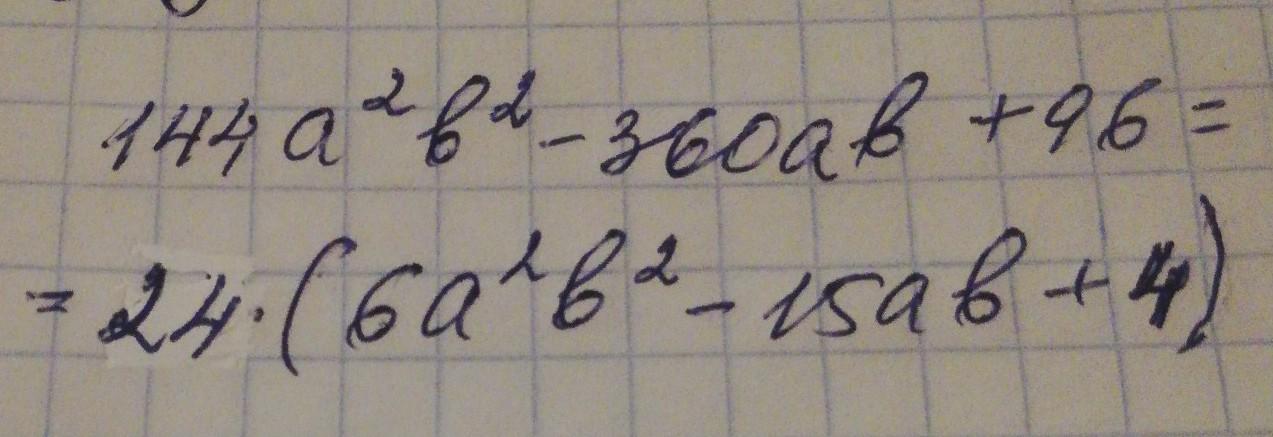 144a²b² - 360ab + 96 =
= 24·(6a²b² - 15ab + 4)